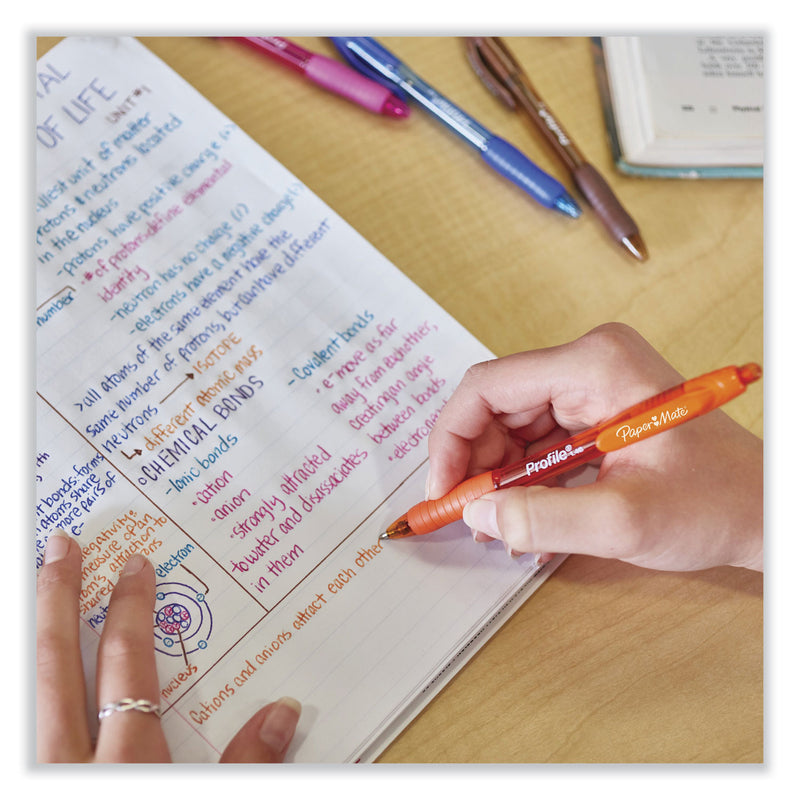 OF LIFE
UNIT #1
unit of matter
protons & neutrons located
in the nucleus
-protons have positive charge
• # of protons define elemental
identity
-neutron has no charge
-electrons have a negative charge
>all atoms of the same element have the
same number of protons, but can have different
neutrons → ISOTOPE
↳ different atomic mass
CHEMICAL BONDS
-Ionic bonds
• cation
• anion
• strongly attracted
to water and dissassociates
in them
-Covalent bonds
• e- move as far
away from each other,
creating an angle
between bonds
number
bonds: forms
atoms share
more pairs of
e-
measure of an
attraction to
electron
nucleus
Cations and anions attract each other
Profile
Paper Mate